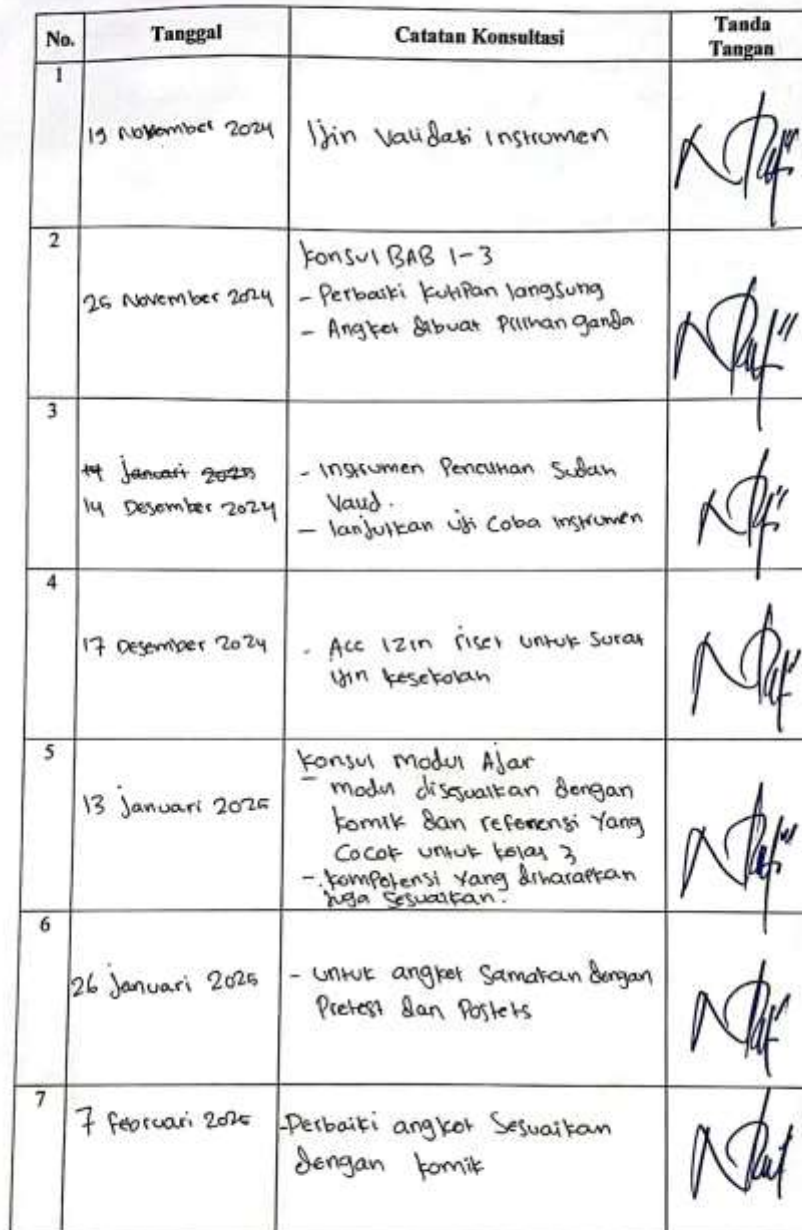 No. Tanggal Catatan Konsultasi Tanda Tangan
1
19 November 2024 Ijin Validasi Instrumen
2
Konsul BAB 1-3
26 November 2024 - Perbaiki kutipan langsung
- Angket dibuat Pilihan ganda
3
14 Januari 2025 - Instrumen Sudah
14 Desember 2024 Valid.
- lanjutkan uji Coba instrumen
4
17 Desember 2024 - Acc izin riset untuk Surat
ijin kesekolah
5
Konsul modul Ajar
13 Januari 2025 - modul disesuaikan dengan
komik dan referensi Yang
Cocok untuk kelas 3
- kompetensi yang diharapkan
juga sesuaikan.
6
26 Januari 2025 - untuk angket Samakan dengan
Pretest dan Postets
7
7 Februari 2025 - Perbaiki angket Sesuaikan
dengan komik